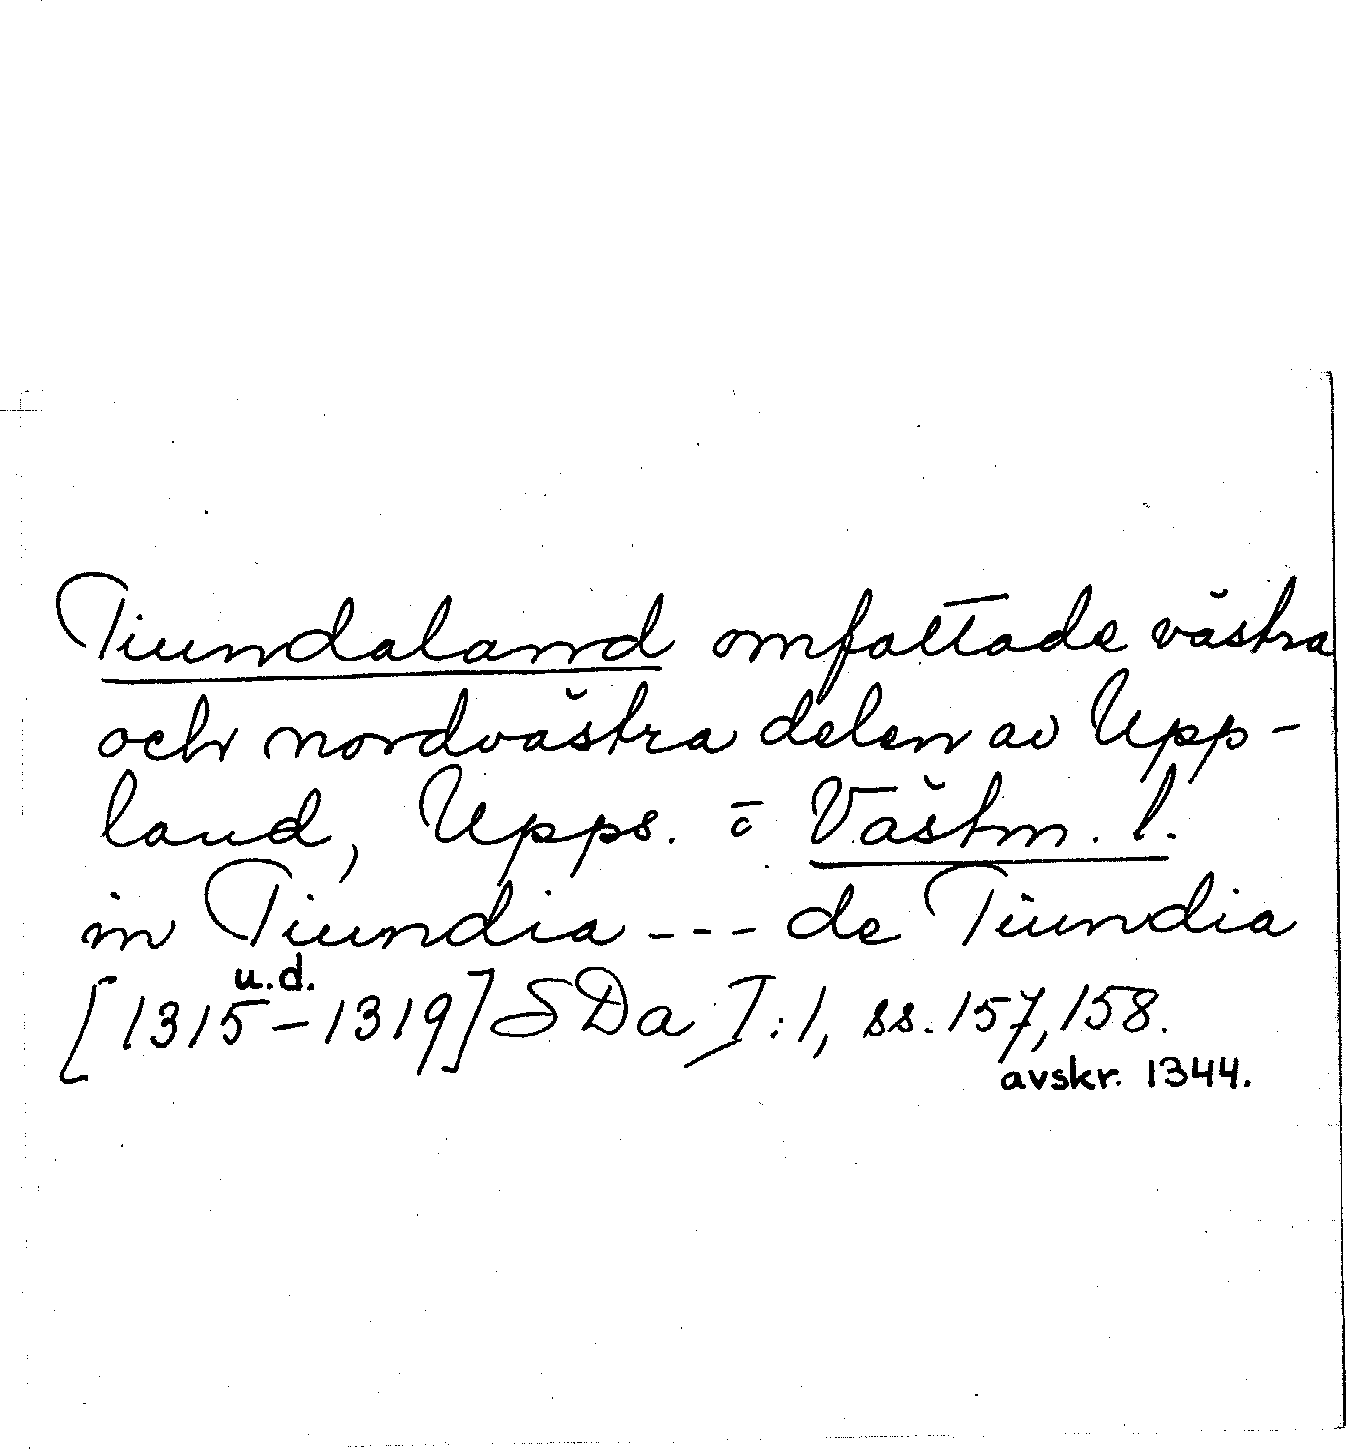 Tiundaland omfattade västra
och nordvästra delen av Upp-
land, Upps. o Västm. l.
in Tiundia --- de Tiundia
u.d.
[1315-1319] SDa I:1, ss. 157, 158.
avskr. 1344.